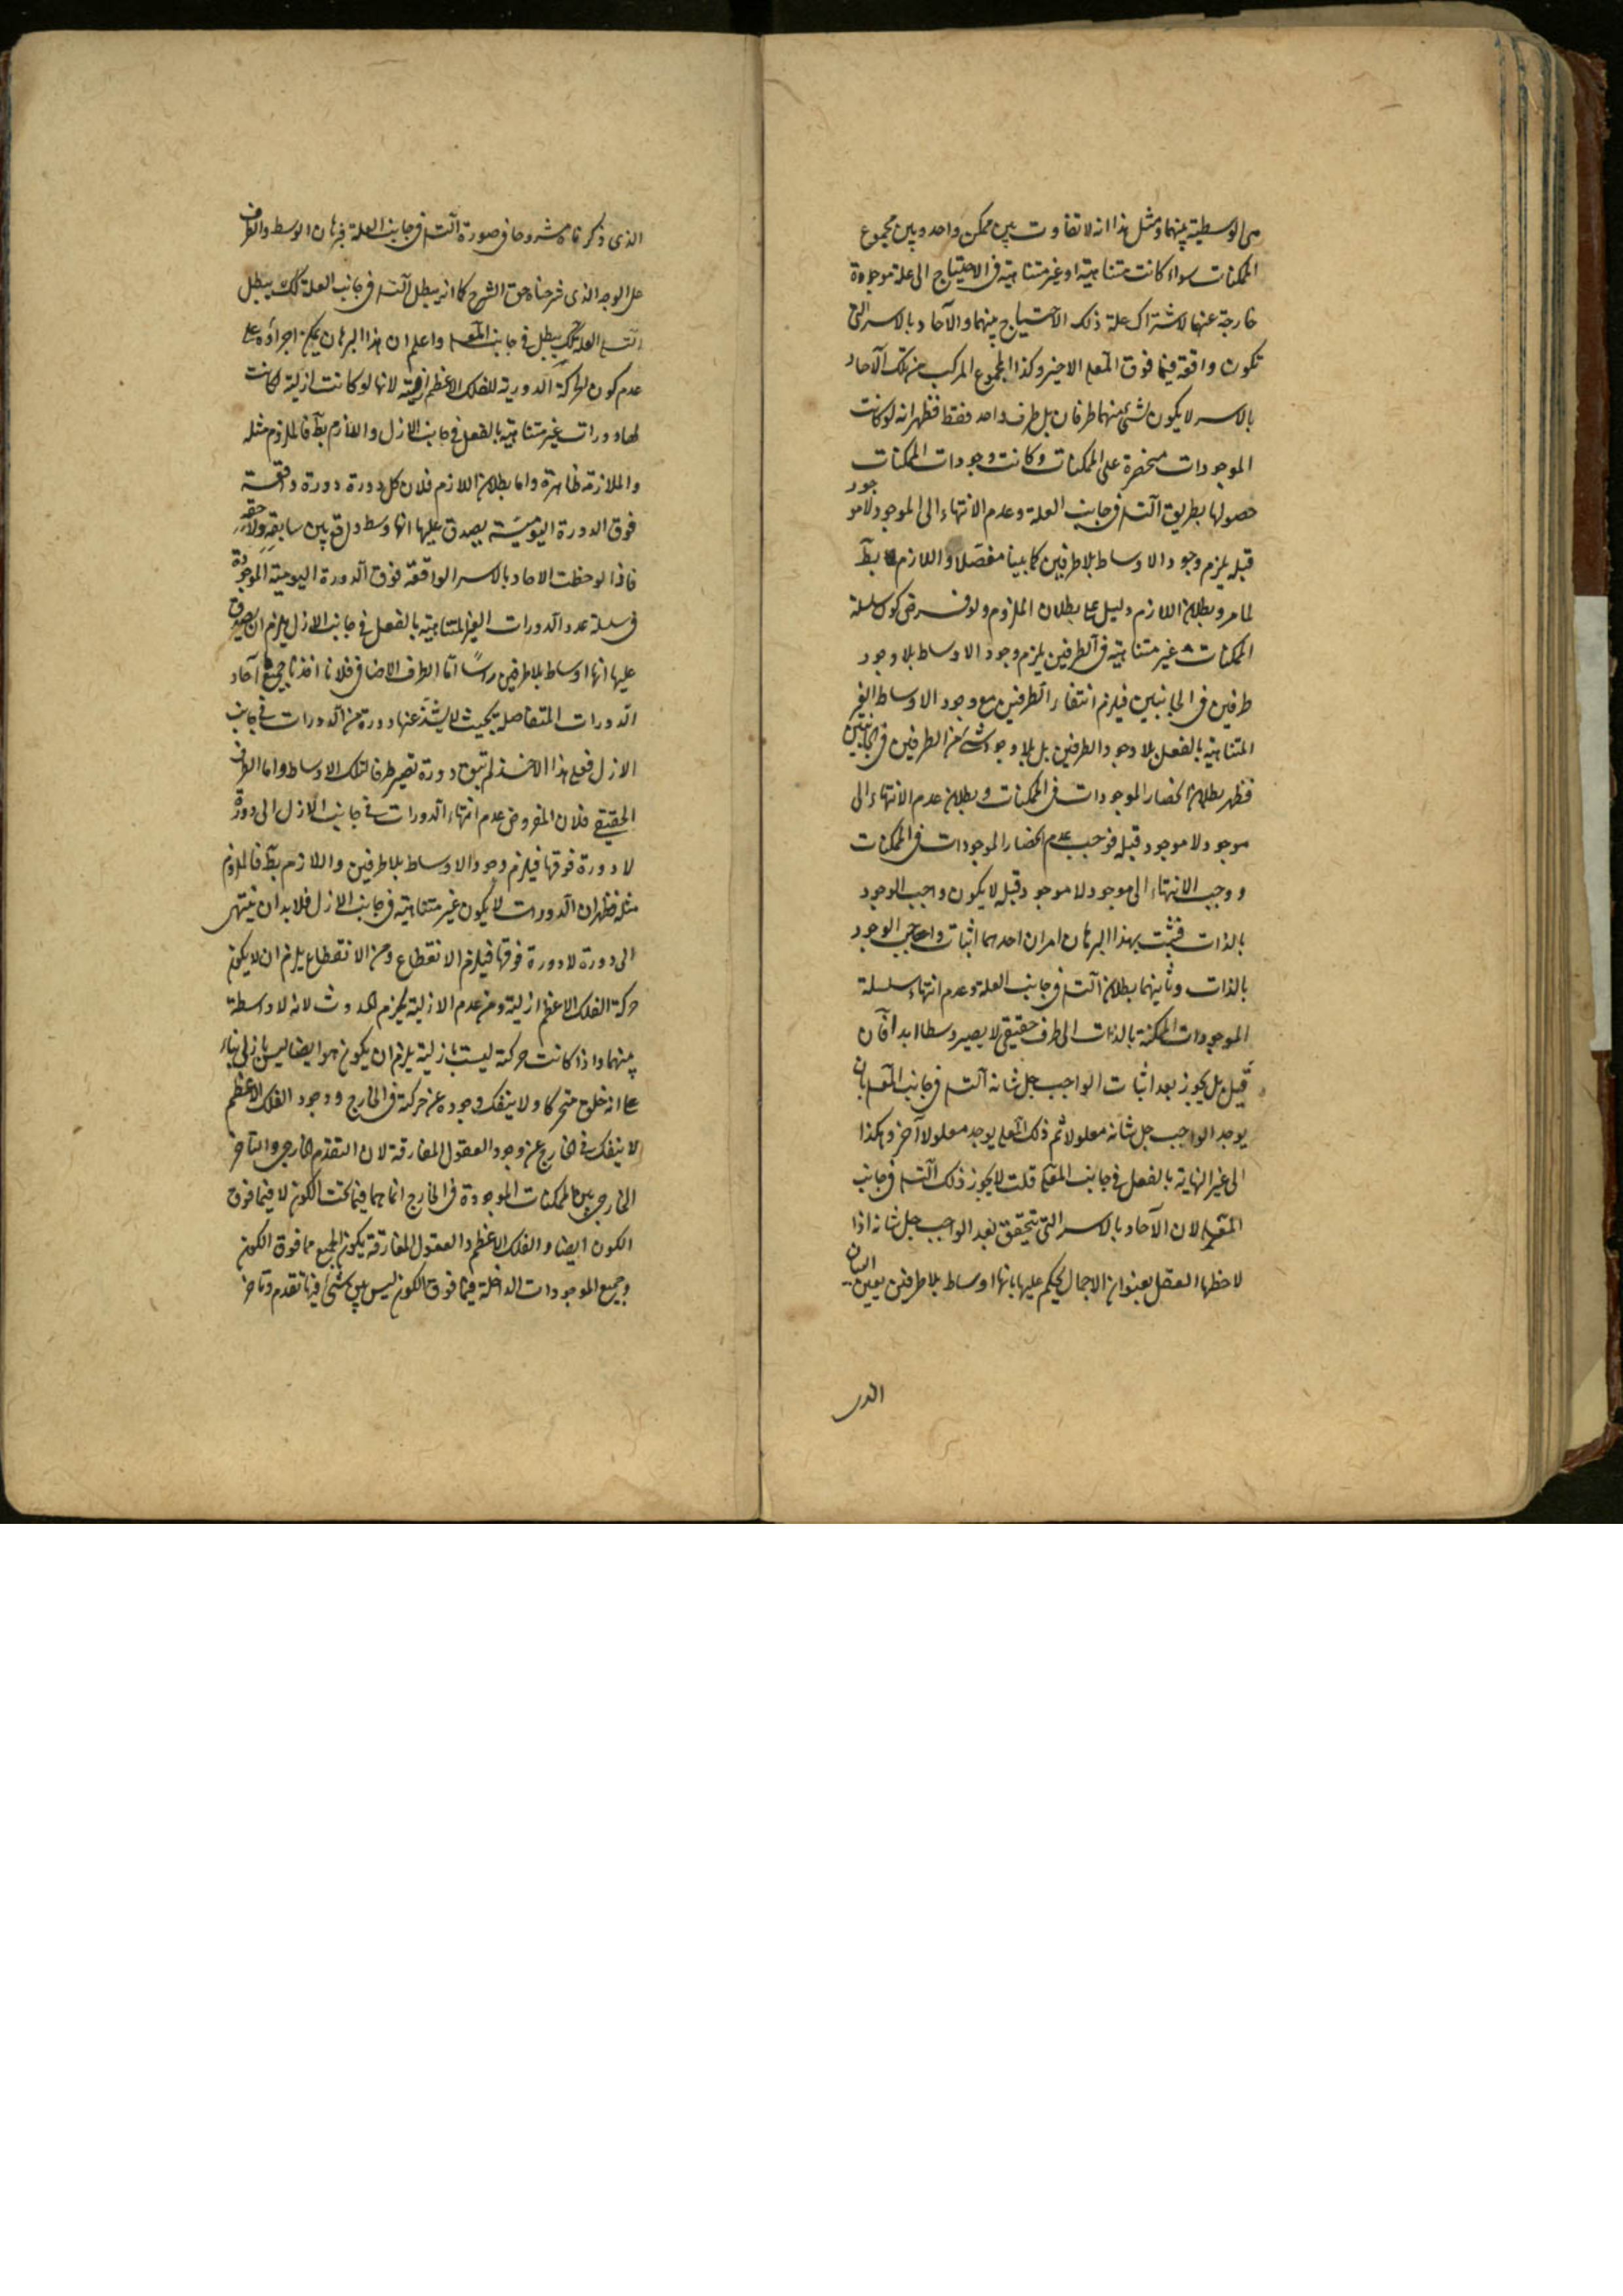 هى الوسطية بينهما ومثل هذا انه لا تفاوت بين ممكن واحد وبين مجموع
الممكنات سواء كانت متناهية او غير متناهية فى الاحتياج الى علة موجودة
خارجة عنها لاشتراك علة ذلك الاحتياج بينهما والآحاد بالاسر التى
تكون واقعة فيما فوق المعلول الاخير وكذا المجموع المركب من تلك الآحاد
بالاسر لا يكون لشئ منهما طرفان بل طرف واحد فقط فظهر انه لو كانت
الموجودات منحصرة على الممكنات وكانت وجودات الممكنات
حصولها بطريق التسـ فى جانب العلة وعدم الانتهاء الى الموجود لا موجود
قبله يلزم وجود الاوساط بلا طرفين كما بينا مفصلا واللازم بط
لما مر وبطلان اللازم دليل على بطلان الملزوم ولو فرض كون سلسلة
الممكنات غير متناهية فى الطرفين يلزم وجود الاوساط بلا وجود
طرفين فى الجانبين فيلزم انتفاء الطرفين مع وجود الاوساط الغير
المتناهية بالفعل بلا وجود الطرفين بل بلا وجود شئ من الطرفين فى الجانبين
فظهر بطلان انحصار الموجودات فى الممكنات وبطلان عدم الانتهاء الى
موجود لا موجود قبله فوجب عدم انحصار الموجودات فى الممكنات
ووجب الانتهاء الى موجود لا موجود قبله لا يكون واجب الوجود
بالذات فثبت بهذا البرهان امران احدهما اثبات واجب الوجود
بالذات وثانيهما بطلان التسـ فى جانب العلة وعدم انتهاء سلسلة
الموجودات الممكنة بالذات الى طرف حقيقى لا يصير وسطا ابدا فان
قيل بل يجوز بعد اثبات الواجب جل شانه التسـ فى جانب المعلول بان
يوجد الواجب جل شانه معلولا ثم ذلك المعلول يوجد معلولا آخر وهكذا
الى غير النهاية بالفعل فى جانب المعلول قلت لا يجوز ذلك التسـ فى جانب
المعلول لان الآحاد بالاسر التى تتحقق بعد الواجب جل شانه اذا
لاحظها العقل بعنوان الاجمال يحكم عليها بانها اوساط بلا طرفين بعين البيان
الذى
الذى ذكرناه مشروحا فى صورة التسـ فى جانب العلة فبرهان الوسط والطرف
على الوجه الذى شرحناه حق الشرح كما انه يبطل التسـ فى جانب العلة كذلك يبطل
يبطل فى جانب المعلول واعلم ان هذا البرهان يمكن اجراؤه على
عدم كون الحركة الدورية للفلك الاعظم ازلية لانها لو كانت ازلية لكانت
لها دورات غير متناهية بالفعل فى جانب الازل واللازم بط فالملزوم مثله
والملازمة ظاهرة واما بطلان اللازم فلان كل دورة دورة واقعة
فوق الدورة اليومية يصدق عليها انها وسط واقع بين سابقه ولاحقه
فاذا لوحظت الاحاد بالاسر الواقعة فوق الدورة اليومية الموجودة
فى سلسلة عدد الدورات الغير المتناهية بالفعل فى جانب الازل يلزم ان يصدق
عليها انها اوساط بلا طرفين راسًا اما الطرف الاضافى فلانا اخذنا جميع آحاد
الدورات المتفاصلة بحيث لا يشذ عنها دورة من الدورات فى جانب
الازل فعلى هذا الاخذ لم تبق دورة تصير طرفا لتلك الاوساط واما الطرف
الحقيقى فلان المفروض عدم انتهاء الدورات فى جانب الازل الى دورة
لا دورة فوقها فيلزم وجود الاوساط بلا طرفين واللازم بط فالملزوم
مثله فظهر ان الدورات لا يكون غير متناهية فى جانب الازل فلا بد ان ينتهى
الى دورة لا دورة فوقها فيلزم الانقطاع ومن الانقطاع يلزم ان لا يكون
حركة الفلك الاعظم ازلية ومن عدم الازلية يلزم الحدوث لانه لا واسطة
بينهما واذا كانت حركته ليست بازلية يلزم ان يكون هو ايضا ليس بازلى بناء
على انه خلق متحركا ولا ينفك وجوده عن حركته فى الخارج ووجود الفلك الاعظم
لا ينفك فى الخارج عن وجود العقول المفارقة لان التقدم الخارجى والتاخر
الخارجى بين الممكنات الموجودة فى الخارج انما هما فيما تحت الكون لا فيما فوق
الكون ايضا والفلك الاعظم والعقول المفارقة يكون الجميع مما فوق الكون
وجميع الموجودات الداخلة فيما فوق الكون ليس بين شئ فيها تقدم وتاخر